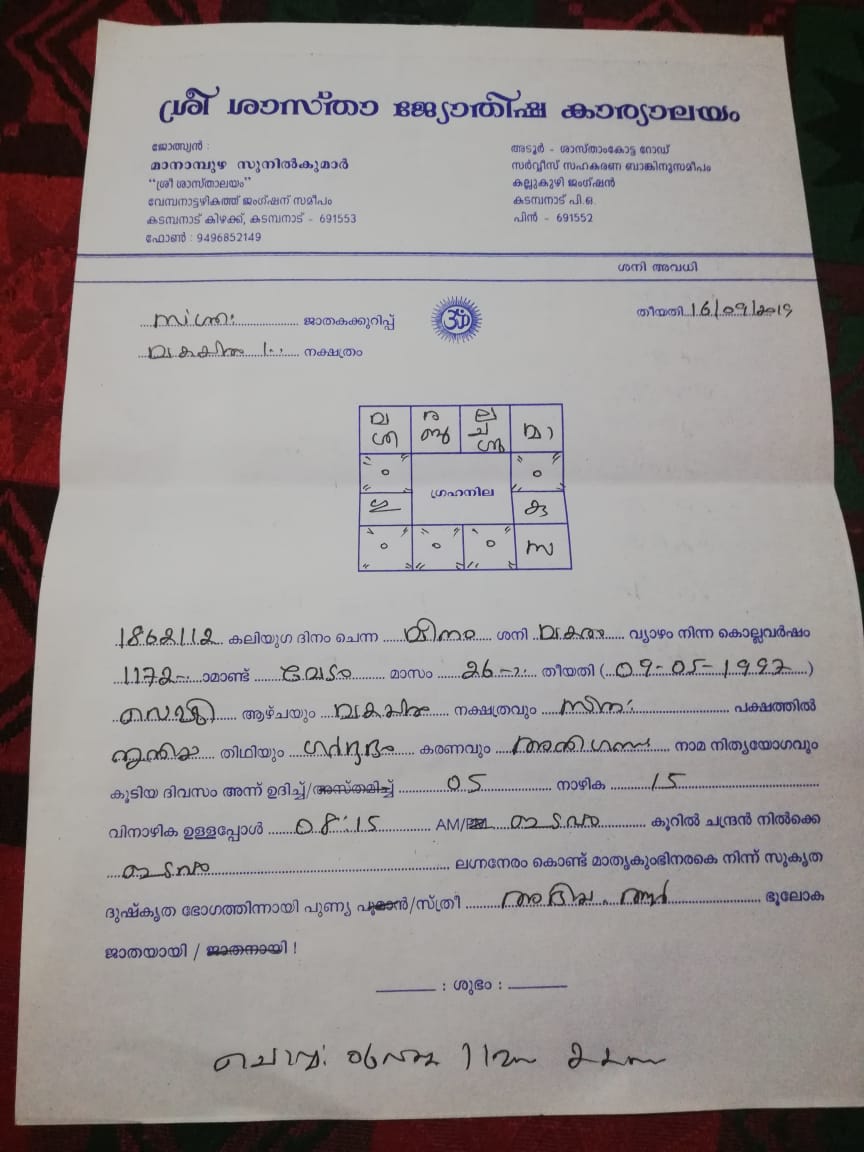 ശ്രീ ശാസ്താ ജ്യോതിഷ കാര്യാലയം
ജോത്സ്യൻ :
മാനാമ്പുഴ സുനിൽകുമാർ
"ശ്രീ ശാസ്താലയം"
വേമ്പനാട്ടഴികത്ത് ജംഗ്ഷന് സമീപം
കടമ്പനാട് കിഴക്ക്, കടമ്പനാട് - 691553
ഫോൺ : 9496852149
അടൂർ - ശാസ്താംകോട്ട റോഡ്
സർവ്വീസ് സഹകരണ ബാങ്കിനുസമീപം
കല്ലുകുഴി ജംഗ്ഷൻ
കടമ്പനാട് പി.ഒ.
പിൻ - 691552
ശനി അവധി
ജാതകക്കുറിപ്പ്
തീയതി 16/09/2019
നക്ഷത്രം
ഗ്രഹനില
1862112 കലിയുഗ ദിനം ചെന്ന മീനം ശനി മകരം വ്യാഴം നിന്ന കൊല്ലവർഷം
1172 ാമാണ്ട് മേടം മാസം 26 തീയതി (09-05-1997)
വെള്ളി ആഴ്ചയും നക്ഷത്രവും പക്ഷത്തിൽ
തിഥിയും കരണവും നാമ നിത്യയോഗവും
കൂടിയ ദിവസം അന്ന് ഉദിച്ച്/അസ്തമിച്ച് 05 നാഴിക 15
വിനാഴിക ഉള്ളപ്പോൾ 08:15 AM/ ഇടവം കൂറിൽ ചന്ദ്രൻ നിൽക്കെ
ഇടവം ലഗ്നനേരം കൊണ്ട് മാതൃകുംഭിനരകെ നിന്ന് സുകൃത
ദുഷ്കൃത ഭോഗത്തിന്നായി പുണ്യ പുമാൻ/സ്ത്രീ ഭൂലോക
ജാതയായി / ജാതനായി !
: ശുഭം :